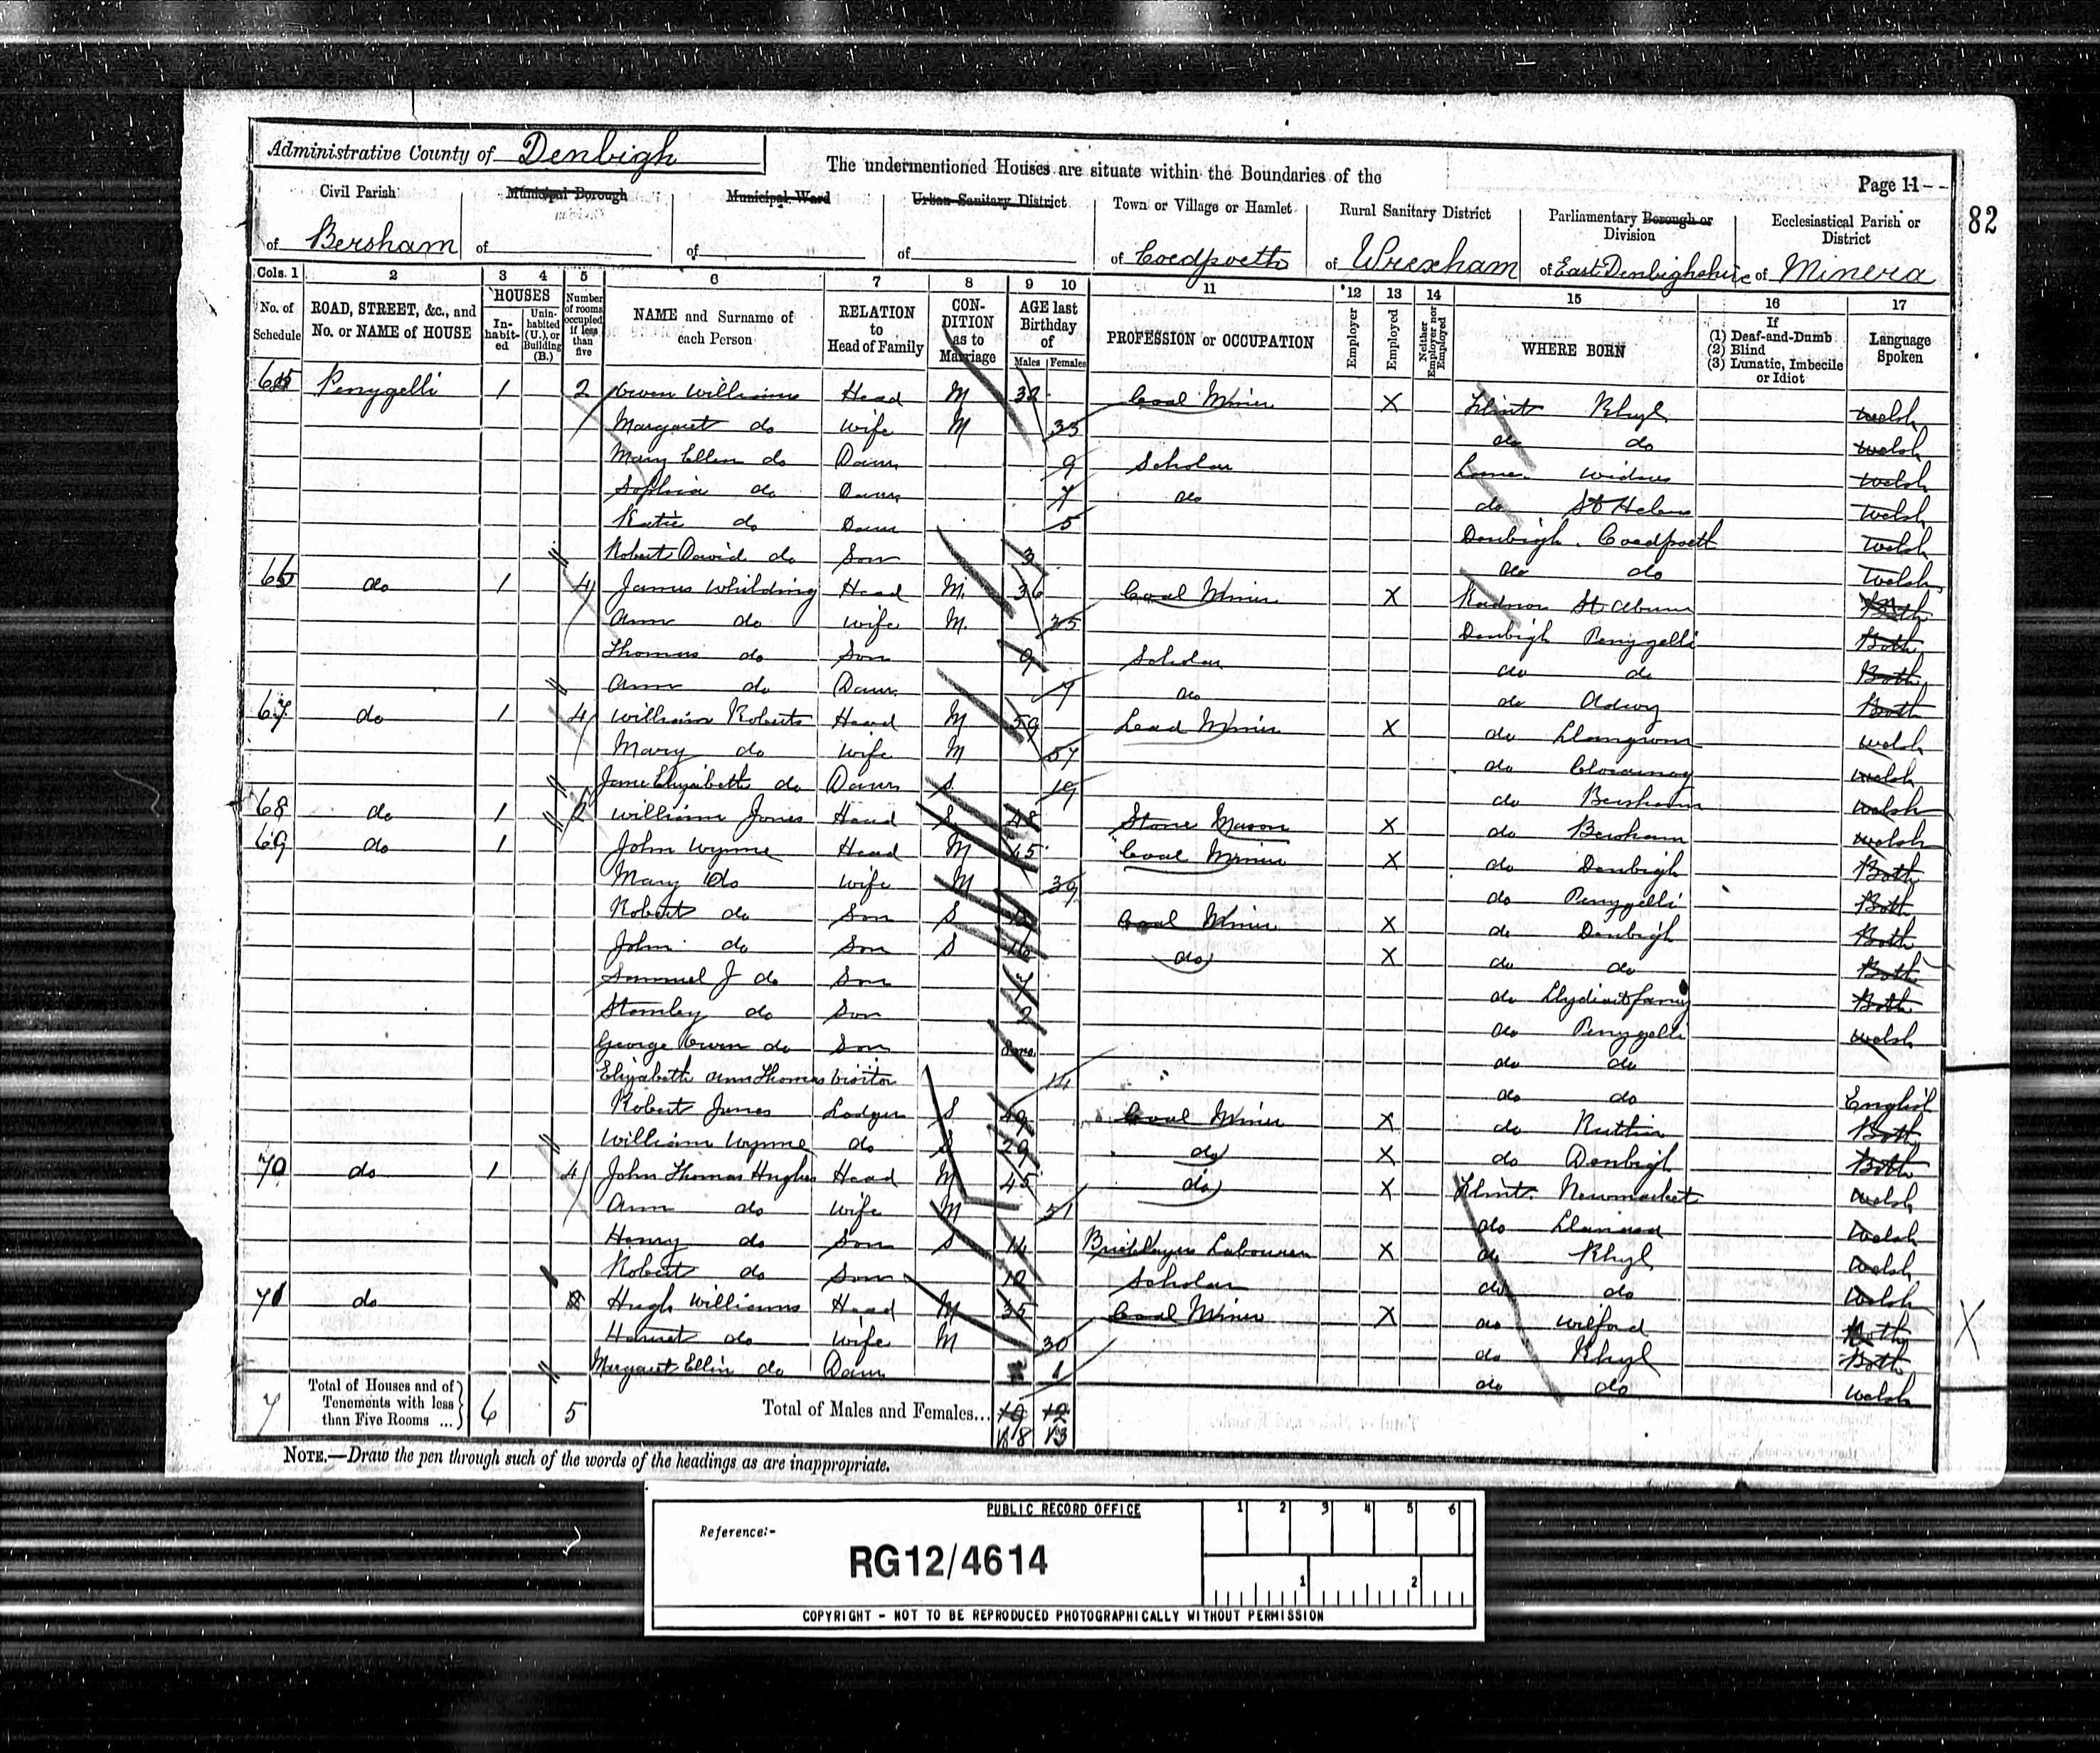 Administrative County of Denbigh
The undermentioned Houses are situate within the Boundaries of the
Page 11
82
Civil Parish
of Bersham
Municipal Borough
of
Municipal Ward
of
Urban Sanitary District
of
Town or Village or Hamlet
of Coedpoeth
Rural Sanitary District
of Wrexham
Parliamentary Borough or Division
of East Denbighshire
Ecclesiastical Parish or District
of Minera
Cols. 1 2 3 4 5 6 7 8 9 10 11 12 13 14 15 16 17
No. of Schedule
ROAD, STREET, &c., and No. or NAME of HOUSE
HOUSES
In-habit-ed
Unin-habited (U.), or Building (B.)
Number of rooms occupied if less than five
NAME and Surname of each Person
RELATION to Head of Family
CON-DITION as to Marriage
AGE last Birthday of
Males Females
PROFESSION or OCCUPATION
Employer
Employed
Neither Employer nor Employed
WHERE BORN
If
(1) Deaf-and-Dumb
(2) Blind
(3) Lunatic, Imbecile or Idiot
Language Spoken
65 Penygelli 1 2 Owen Williams Head M 32 Coal Miner X Flint Rhyl Welsh
Margaret do Wife M 33 do do Welsh
Mary Ellen do Daur 9 Scholar Lanc Widnes Welsh
Sophia do Daur 7 do do St Helens Welsh
Katie do Daur 5 Denbigh Coedpoeth Welsh
Robert David do Son 3 do do Welsh
66 do 1 4 James Whilding Head M 36 Coal Miner X Radnor Both
Ann do Wife M 35 Denbigh Penygelli Both
Thomas do Son 9 Scholar do do Both
Ann do Daur 7 do do Adwy Both
67 do 1 4 William Roberts Head M 59 Lead Miner X do Llangwm Welsh
Mary do Wife M 57 do Clocaenog Welsh
Jane Elizabeth do Daur S 19 do Bersham Welsh
68 do 1 2 William Jones Head S 48 Stone Mason X do Bersham Welsh
69 do 1 John Wynne Head M 45 Coal Miner X do Denbigh Both
Mary do Wife M 39 do Penygelli Both
Robert do Son S Coal Miner X do Denbigh Both
John do Son S 16 do X do do Both
Samuel J do Son 7 do Both
Stanley do Son 2 do Penygelli Welsh
George Owen do Son do do
Elizabeth Ann Thomas Visitor 14 do do English
Robert Jones Lodger S 49 Coal Miner X do Ruthin Both
William Wynne do S 29 do X do Denbigh Both
70 do 1 4 John Thomas Hughes Head M 45 do X Flint Newmarket Welsh
Ann do Wife M 51 do Llanasa Welsh
Henry do Son S 14 Bricklayers Labourer X do Rhyl Welsh
Robert do Son 12 Scholar do do Welsh
71 do Hugh Williams Head M 35 Coal Miner X do Wilford Both
Harriet do Wife M 30 do Rhyl Both
Margaret Ellin do Daur 1 do do Welsh
7 Total of Houses and of Tenements with less than Five Rooms ... 6 5 Total of Males and Females... 19 12
18 13
NOTE.—Draw the pen through such of the words of the headings as are inappropriate.
PUBLIC RECORD OFFICE
1 2 3 4 5 6
Reference:-
RG12/4614
1 2
COPYRIGHT - NOT TO BE REPRODUCED PHOTOGRAPHICALLY WITHOUT PERMISSION